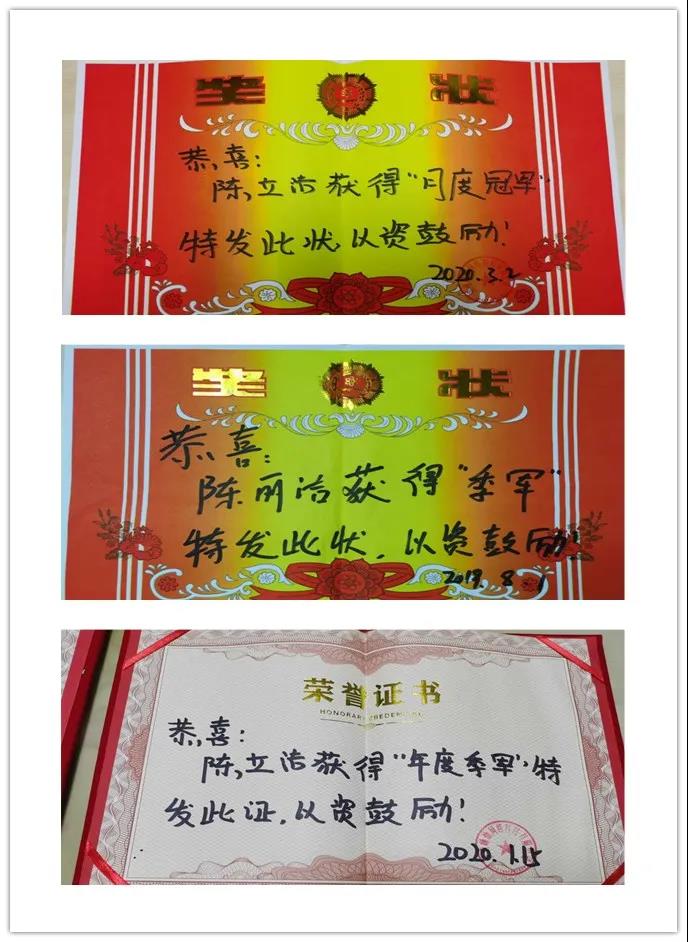 奖状
恭喜:
陈立洁获得“月度冠军”
特发此状,以资鼓励!
2020.3.2
奖状
恭喜:
陈丽洁获得“季军”
特发此状,以资鼓励!
2019.8.1
荣誉证书
恭喜:
陈立洁获得“年度季军”,特
发此证,以资鼓励!
2020.1.15